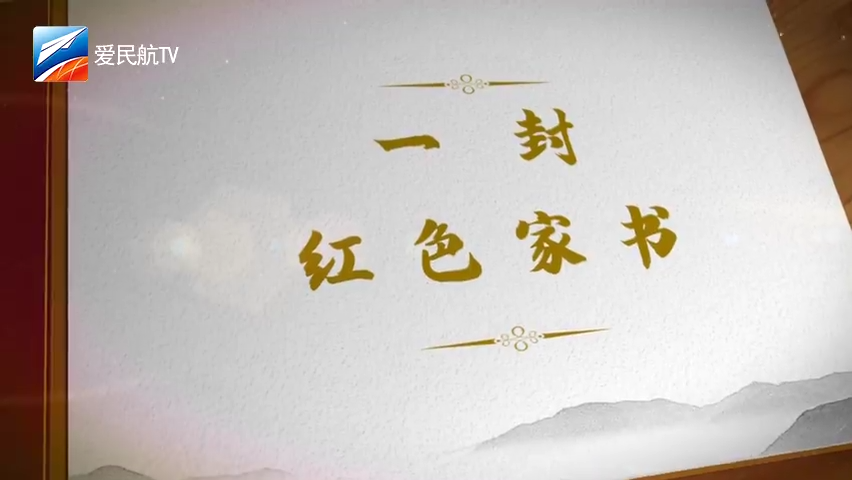 爱民航TV
一封
红色家书